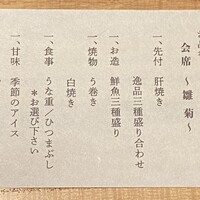 会席 ～雛菊～
一、先付 肝焼き
逸品三種盛り合わせ
一、お造 鮮魚三種盛り
一、焼物 う巻き
白焼き
一、食事 うな重／ひつまぶし
＊お選び下さい
一、甘味 季節のアイス